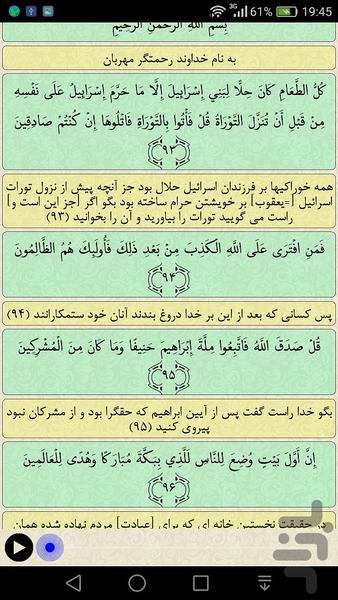 3G 61% 19:45
بِسْمِ اللَّهِ الرَّحْمَنِ الرَّحِيمِ
به نام خداوند رحمتگر مهربان
كُلُّ الطَّعَامِ كَانَ حِلًّا لِبَنِي إِسْرَائِيلَ إِلَّا مَا حَرَّمَ إِسْرَائِيلُ عَلَى نَفْسِهِ
مِنْ قَبْلِ أَنْ تُنَزَّلَ التَّوْرَاةُ قُلْ فَأْتُوا بِالتَّوْرَاةِ فَاتْلُوهَا إِنْ كُنْتُمْ صَادِقِينَ
۹۳
همه خوراكيها بر فرزندان اسرائيل حلال بود جز آنچه پيش از نزول تورات
اسرائيل [=يعقوب] بر خويشتن حرام ساخته بود بگو اگر [جز اين است و]
راست مى گوييد تورات را بياوريد و آن را بخوانيد (۹۳)
فَمَنِ افْتَرَى عَلَى اللَّهِ الْكَذِبَ مِنْ بَعْدِ ذَلِكَ فَأُولَئِكَ هُمُ الظَّالِمُونَ
۹۴
پس كسانى كه بعد از اين بر خدا دروغ بندند آنان خود ستمكارانند (۹۴)
قُلْ صَدَقَ اللَّهُ فَاتَّبِعُوا مِلَّةَ إِبْرَاهِيمَ حَنِيفًا وَمَا كَانَ مِنَ الْمُشْرِكِينَ
۹۵
بگو خدا راست گفت پس از آيين ابراهيم كه حقگرا بود و از مشركان نبود
پيروى كنيد (۹۵)
إِنَّ أَوَّلَ بَيْتٍ وُضِعَ لِلنَّاسِ لَلَّذِي بِبَكَّةَ مُبَارَكًا وَهُدًى لِلْعَالَمِينَ
۹۶
در حقيقت نخستين خانه اى كه براى [عبادت] مردم نهاده شده همان